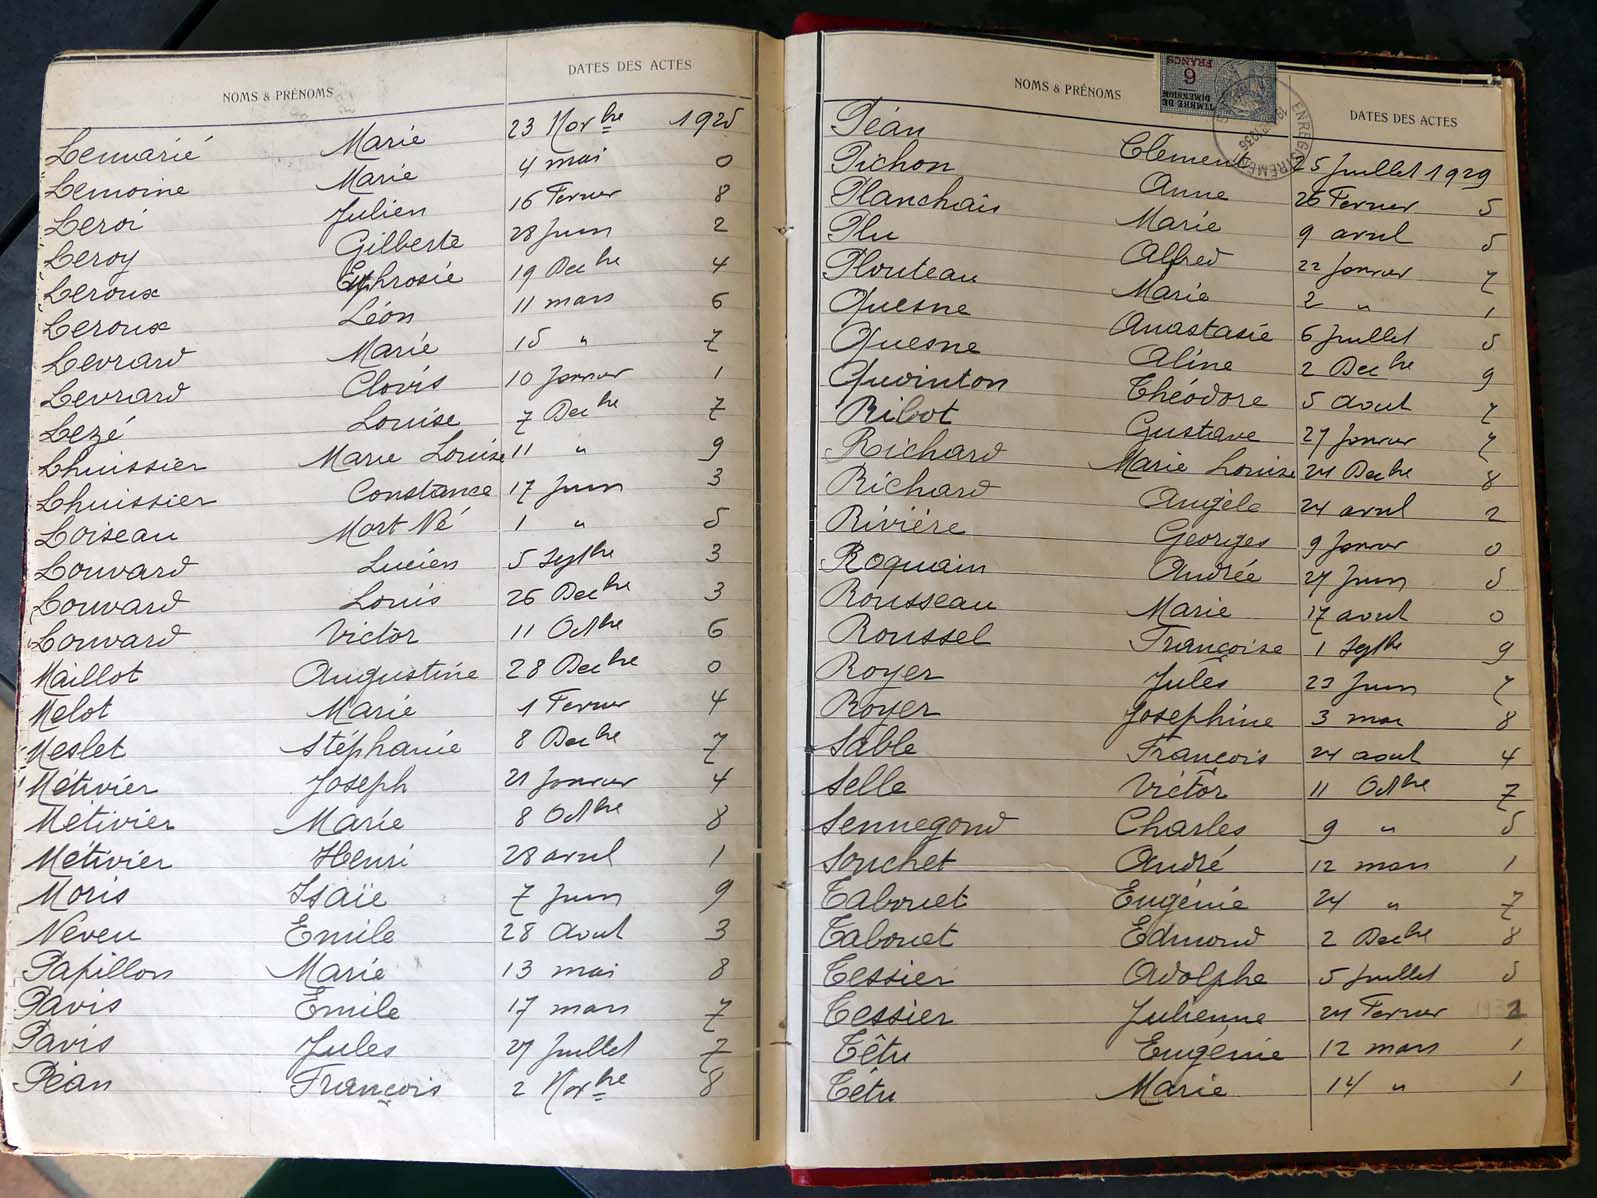 NOMS & PRÉNOMS DATES DES ACTES
Lemarié Marie 23 Novbre 1925
Lemoine Marie 4 mai 0
Leroi Julien 16 Fevrier 8
Leroy Gilberte 28 Juin 2
Leroux Ephrosie 19 Decbre 4
Leroux Léon 11 mars 6
Levrard Marie 15 " 7
Levrard Clovis 10 Janvier 1
Lezé Louise 7 Decbre 7
Lhuissier Marie Louise 11 " 9
Lhuissier Constance 17 Juin 3
Loiseau Mort Né 1 " 5
Louvard Lucien 5 Septbre 3
Louvard Louis 26 Decbre 3
Louvard Victor 11 Octbre 6
Maillot Augustine 28 Decbre 0
Melot Marie 1 Fevrier 4
Meslet Stéphanie 8 Decbre 7
Métivier Joseph 21 Janvier 4
Métivier Marie 8 Octbre 8
Métivier Henri 28 avril 1
Moris Isaïe 7 Juin 9
Neveu Emile 28 Aout 3
Papillon Marie 13 mai 8
Pavis Emile 17 mars 7
Pavis Jules 27 Juillet 7
Péan François 2 Novbre 8
NOMS & PRÉNOMS DATES DES ACTES
6 FRANCS
TIMBRE DE DIMENSION
ENREGISTREMENT
1936
Péan Clement 25 Juillet 1929
Pichon Anne 26 Fevrier 5
Planchais Marie 9 avril 5
Plu Alfred 22 Janvier 7
Plouteau Marie 2 " 1
Quesne Anastasie 6 Juillet 5
Quesne Aline 2 Decbre 9
Quointon Théodore 5 Aout 7
Ribot Gustave 27 Janvier 7
Richard Marie Louise 21 Decbre 8
Richard Angèle 24 avril 2
Rivière Georges 9 Janvier 0
Roquain Andrée 27 Juin 5
Rousseau Marie 17 avril 0
Roussel Françoise 1 Septbre 9
Royer Jules 23 Juin 7
Royer Joséphine 3 mai 8
Sable François 24 aout 4
Selle Victor 11 Octbre 7
Sennegond Charles 9 " 5
Souchet André 12 mars 1
Tabouet Eugénie 24 " 7
Tabouet Edmond 2 Decbre 8
Tessier Adolphe 5 Juillet 5
Tessier Julienne 21 Fevrier 2
Têtu Eugénie 12 mars 1
Têtu Marie 14 " 1